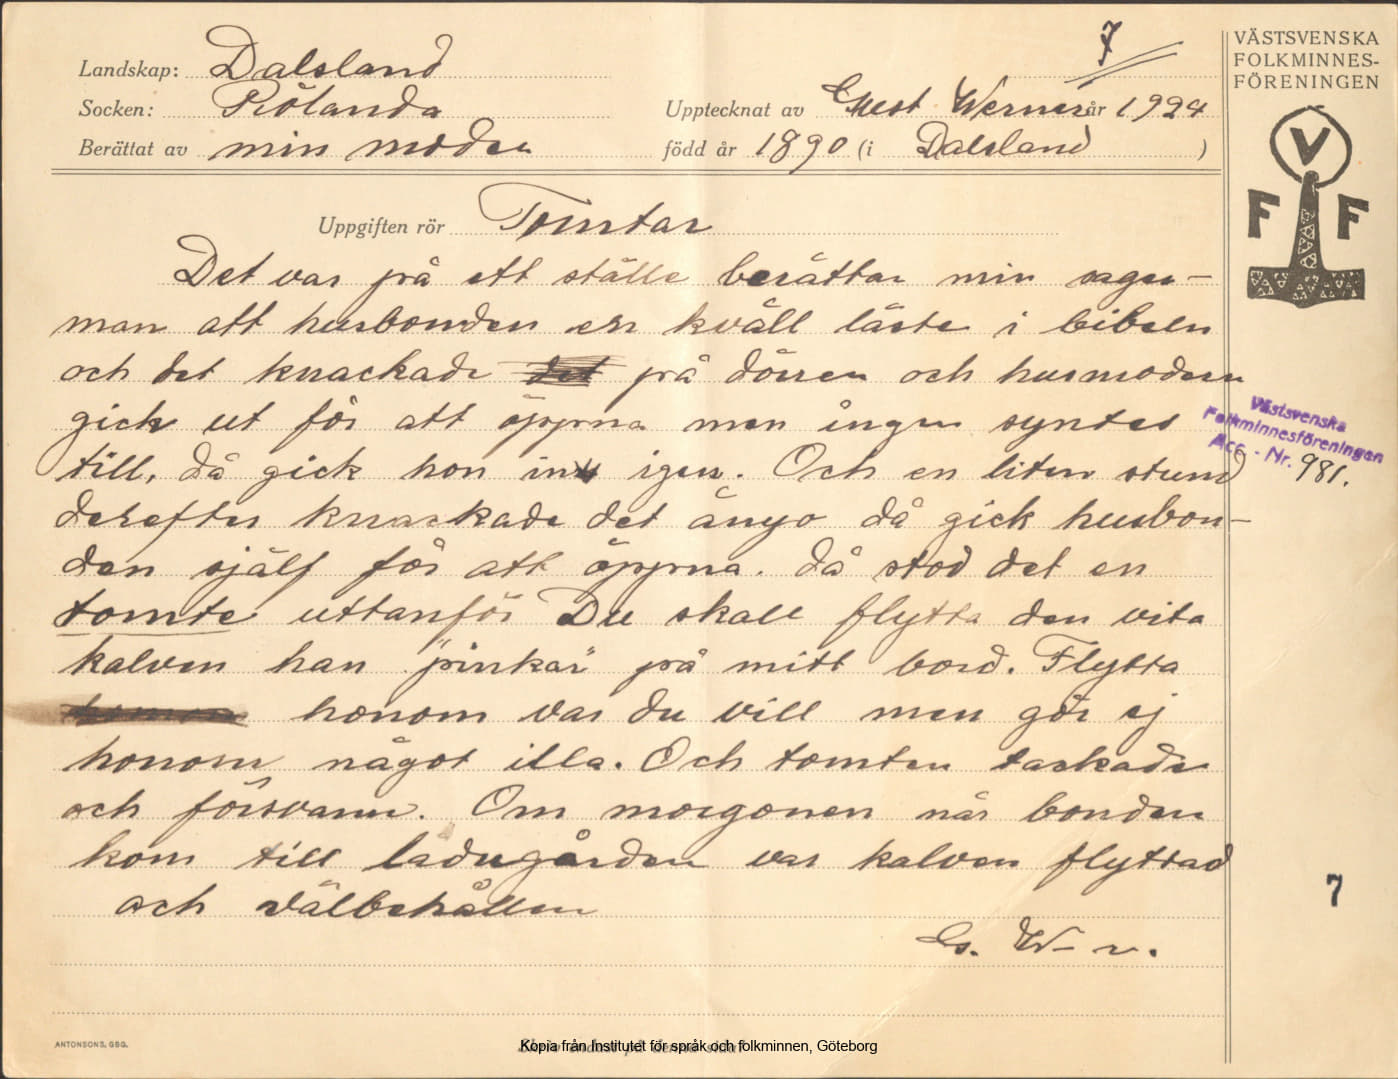 7
VÄSTSVENSKA
FOLKMINNES-
FÖRENINGEN
V
F F
Landskap: Dalsland
Socken: Rölanda
Upptecknat av Ernst Werner år 1924
Berättat av min moder
född år 1890 (i Dalsland )
Uppgiften rör Tomtar
Det var på ett ställe berättar min sages-
man att husbonden en kväll läste i bibeln
och det knackade det på dörren och husmodern
gick ut för att öppna men ingen syntes
till, då gick hon in igen. Och en liten stund
derefter knackade det ånyo då gick husbon-
den själf för att öppna. då stod det en
tomte uttanför Du skall flytta den vita
kalven han "pinkar" på mitt bord. Flytta
honom honom var du vill men gör ej
honom något illa. Och tomten tackade
och försvann. Om morgonen när bonden
kom till ladugården var kalven flyttad
och välbehållen
W
Västsvenska
Folkminnesföreningen
Acc. - Nr. 981.
7
ANTONSONS, GBG.
Skriv endast på denna sida!
Kopia från Institutet för språk och folkminnen, Göteborg